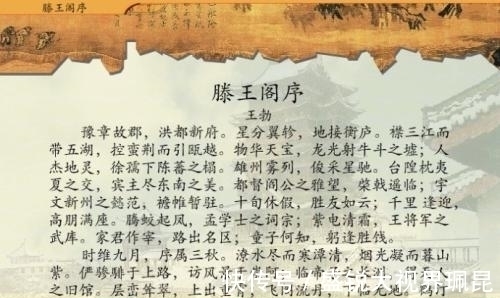 滕王阁序
滕王阁序
王勃
豫章故郡，洪都新府。星分翼轸，地接衡庐。襟三江而
带五湖，控蛮荆而引瓯越。物华天宝，龙光射牛斗之墟；人
杰地灵，徐孺下陈蕃之榻。雄州雾列，俊采星驰。台隍枕夷
夏之交，宾主尽东南之美。都督阎公之雅望，棨戟遥临；宇
文新州之懿范，襜帷暂驻。十旬休假，胜友如云；千里逢迎，
高朋满座。腾蛟起凤，孟学士之词宗；紫电清霜，王将军之
武库。家君作宰，路出名区；童子何知，躬逢胜饯。
时维九月，序属三秋。潦水尽而寒潭清，烟光凝而暮山
紫。俨骖騑于上路，访风
之旧馆。层峦耸翠，上出重霄；飞阁流丹，下临无地。鹤汀
快传号
大视界珮昆